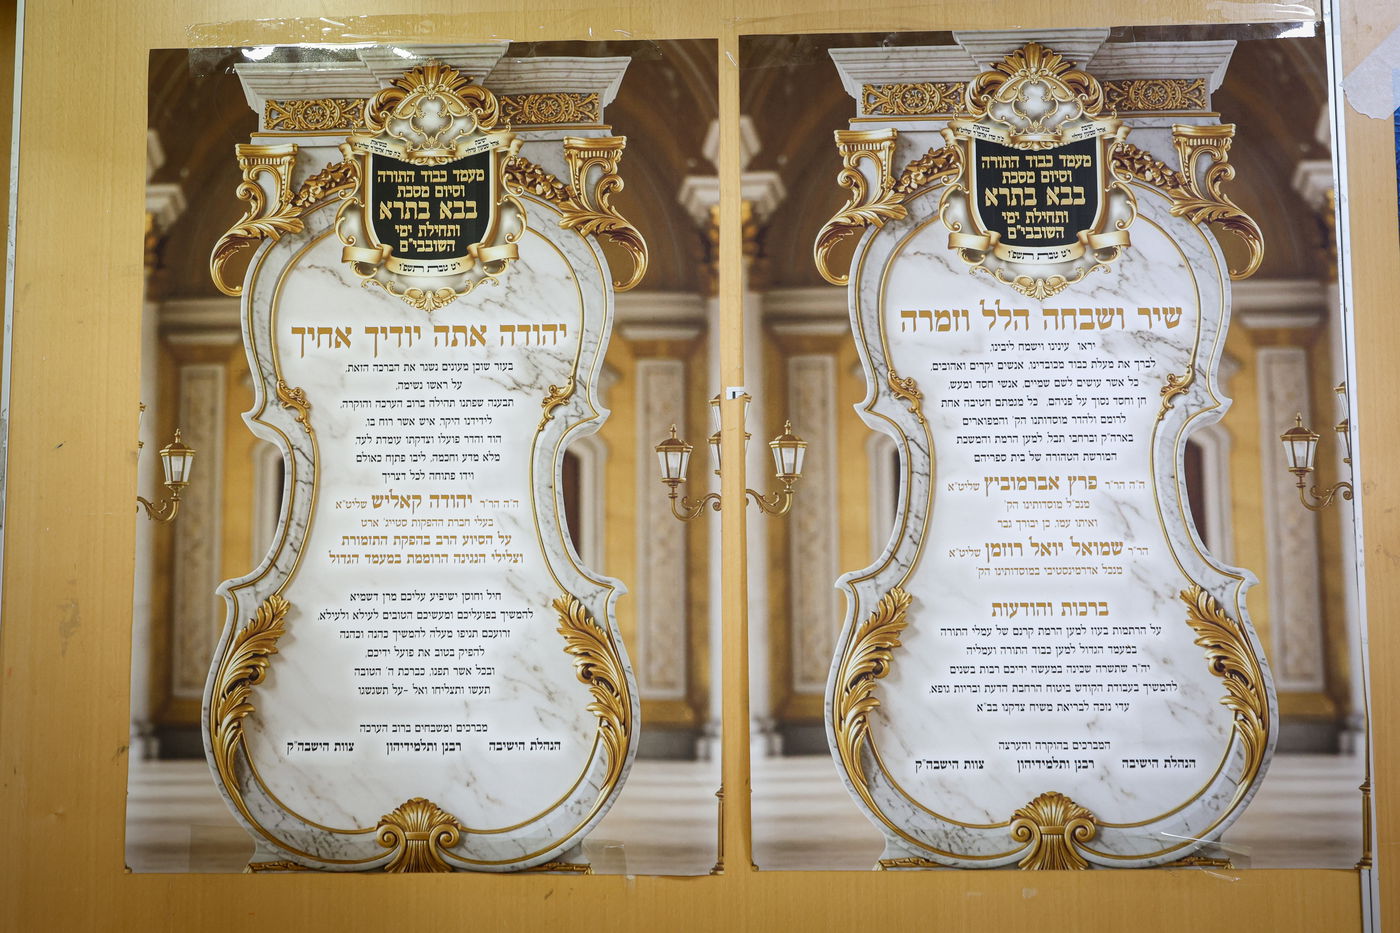 מעמד כבוד התורה
וסיום מסכת
בבא בתרא
ותחילת ימי
השובבי"ם
י"ט טבת תשפ"ו
יהודה אתה יודיך אחיך
בעזר שוכן מעונים נשגר את הברכה הזאת,
על ראשו נשימה,
תבענה שפתנו תהילה ברוב הערכה והוקרה,
לידידנו היקר, איש אשר רוח בו,
הוד והדר פועלו וצדקתו עומדת לעד,
מלא מדע וחכמה, ליבו פתוח כאולם
וידו פתוחה לכל דצריך
ה"ה הר"ר יהודה קאליש שליט"א
בעלי חברת ההפקות סטייג' ארט
על הסיוע הרב בהפקת התזמורת
וצלילי הנגינה הרוממת במעמד הגדול
חיל וחוסן ישיפיע עליכם מרן דשמיא
להמשיך בפועליכם ומעשיכם הטובים לעילא ולעילא,
זרועכם תניפו מעלה להמשיך כהנה וכהנה
להפיק בטוב את פועל ידיכם,
ובכל אשר תפנו, בברכת ה' הטובה
תעשו ותצליחו ואל -על תשגשגו
מברכים ומשבחים ברוב הערכה
הנהלת הישיבה רבנן ותלמידיהון צוות הישבה"ק
מעמד כבוד התורה
וסיום מסכת
בבא בתרא
ותחילת ימי
השובבי"ם
י"ט טבת תשפ"ו
שיר ושבחה הלל וזמרה
יראו עינינו וישמח ליבינו,
לברך את מעלת כבוד מכובדינו, אנשים יקרים ואהובים,
כל אשר עושים לשם שמיים, אנשי חסד ומעש,
חן וחסד נסוך על פניהם, כל מגמתם חטיבה אחת
לרומם ולהדר מוסדותינו הק' והמפוארים
בארה"ק וברחבי תבל, למען הרמת והמשכת
המורשת הטהורה של בית ספריהם
ה"ה הר"ר פרץ אברמוביץ שליט"א
מנכ"ל מוסדותינו הק'
ואיתו עמו, כן יבורך גבר
הר"ר שמואל יואל רוזמן שליט"א
מנכל אדרמינסטיבי במוסדותינו הק'
ברכות והודעות
על הרתמות בעוז למען הרמת קרנם של עמלי התורה
במעמד הגדול למען כבוד התורה ועמליה
יה"ר שתשרה שכינה במעשה ידיכם רבות בשנים
להמשיך בעבודת הקודש ביטוח הרחבת הדעת ובריות גופא,
עדי נזכה לבריאת משיח צדקנו בב"א
המברכים בהוקרה והערצה
הנהלת הישיבה רבנן ותלמידיהון צוות הישבה"ק